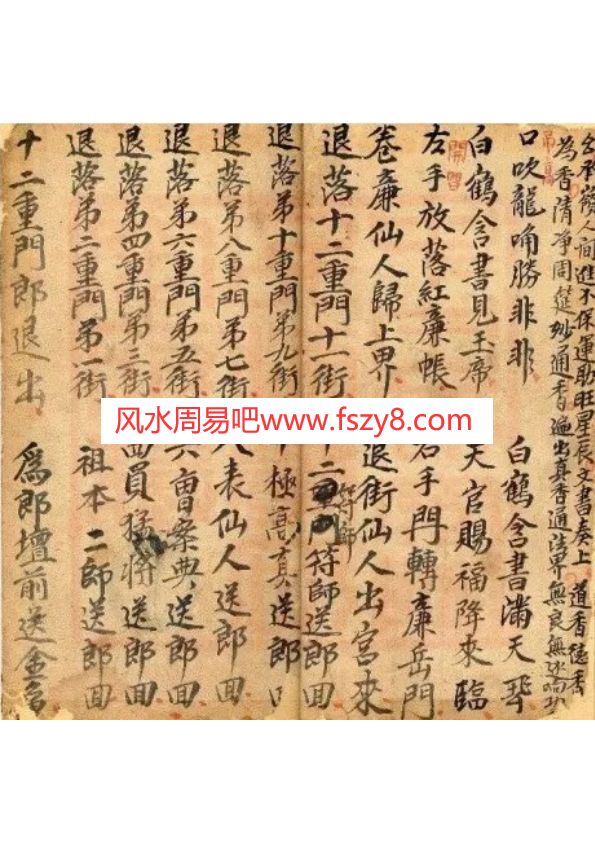 為香清净周筵妙通香遍出真香通法界無良無
文書奏上 道香德香
口吹龍角勝非非 白鶴含書滿天飛
白鶴含書見玉帝 天官賜福降來臨
左手放落紅廉帳 右手門轉廉岳門
卷廉仙人歸上界 退街仙人出宮來
退落十二重門十一街 十二重門符師送郎回
退落第十重門第九街 十極高真送郎回
退落第八重門第七街 八表仙人送郎回
退落第六重門第五街 六曹案典送郎回
退落第四重門第三街 四員猛將送郎回
退落第二重門第一街 祖本二師送郎回
十二重門郎退出 為郎壇前送金言
风水周易吧www.fszy8.com